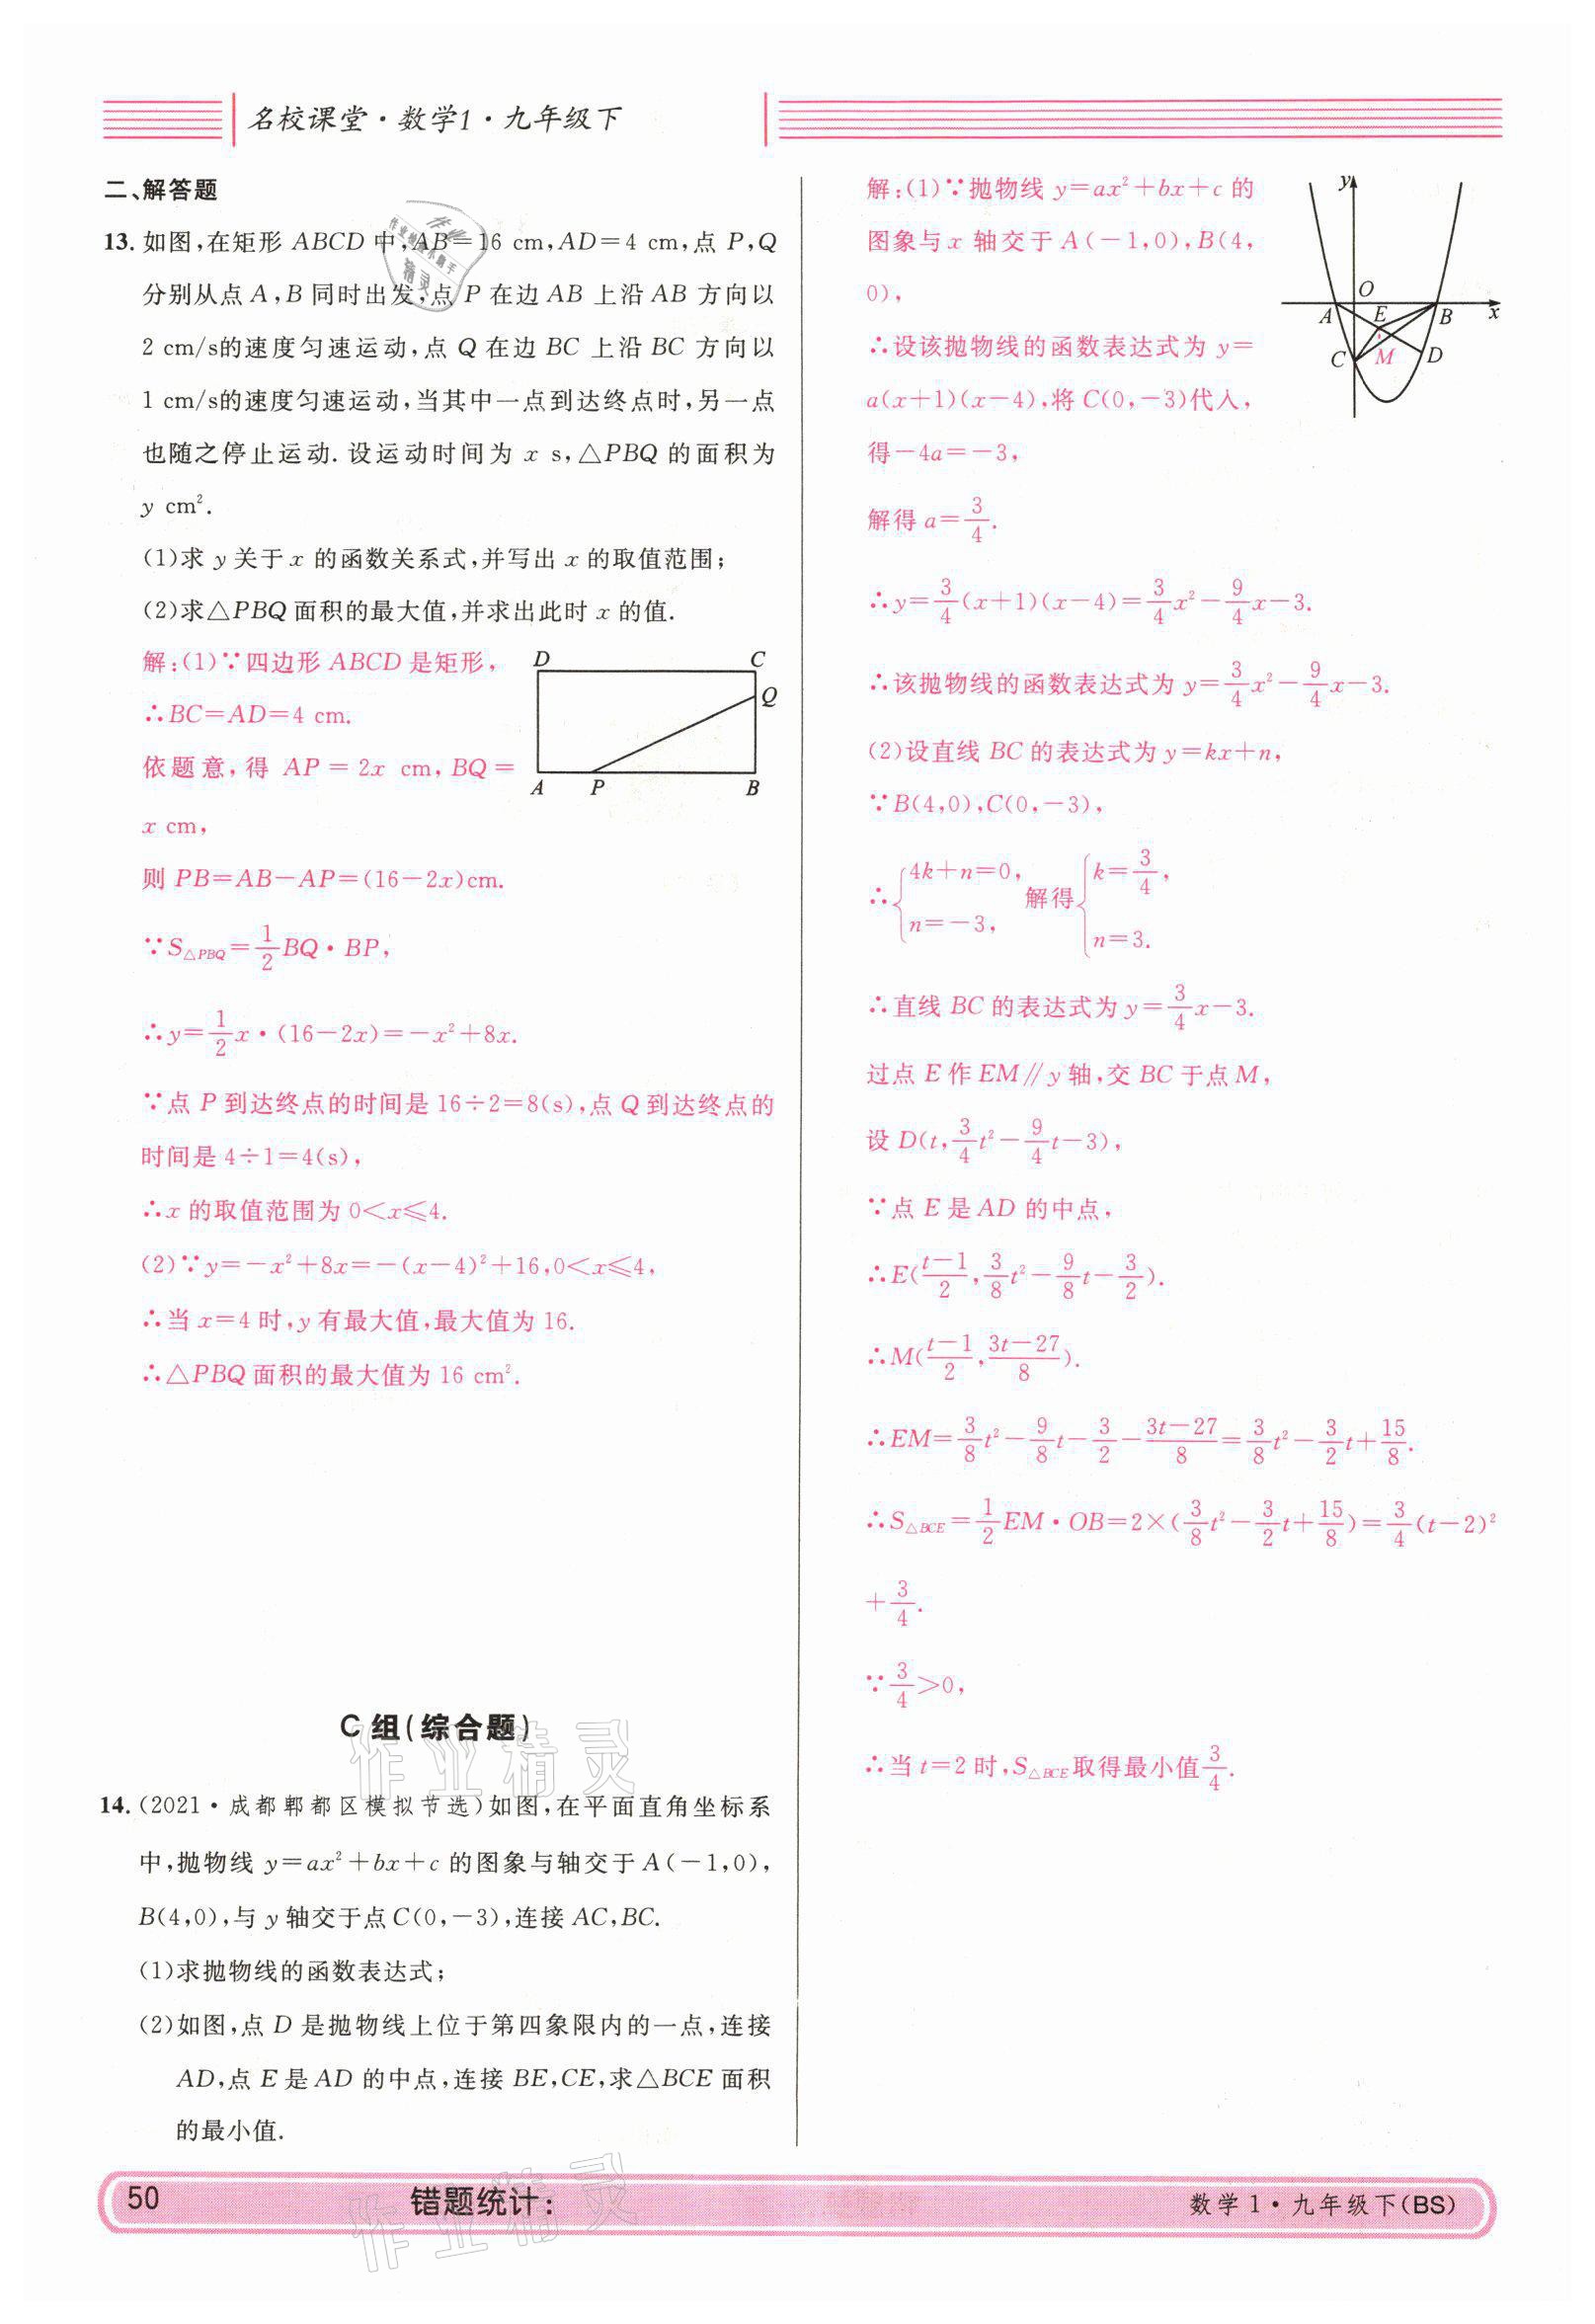 名校课堂·数学1·九年级下
二、解答题
13. 如图,在矩形 ABCD 中,AB=16 cm,AD=4 cm,点 P,Q
分别从点 A,B 同时出发,点 P 在边 AB 上沿 AB 方向以
2 cm/s的速度匀速运动,点 Q 在边 BC 上沿 BC 方向以
1 cm/s的速度匀速运动,当其中一点到达终点时,另一点
也随之停止运动. 设运动时间为 x s,△PBQ 的面积为
y cm².
(1)求 y 关于 x 的函数关系式,并写出 x 的取值范围;
(2)求△PBQ 面积的最大值,并求出此时 x 的值.
解:(1)∵四边形 ABCD 是矩形,
∴BC=AD=4 cm.
依题意,得 AP = 2x cm, BQ =
x cm,
D C
Q
A P B
则 PB=AB-AP=(16-2x)cm.
∵S△PBQ=1/2 BQ·BP,
∴y=1/2 x·(16-2x)=-x²+8x.
∵点 P 到达终点的时间是 16÷2=8(s),点 Q 到达终点的
时间是 4÷1=4(s),
∴x 的取值范围为 0<x≤4.
(2)∵y=-x²+8x=-(x-4)²+16,0<x≤4,
∴当 x=4 时,y 有最大值,最大值为 16.
∴△PBQ 面积的最大值为 16 cm².
C 组(综合题)
14. (2021·成都郫都区模拟节选)如图,在平面直角坐标系
中,抛物线 y=ax²+bx+c 的图象与轴交于 A(-1,0),
B(4,0),与 y 轴交于点 C(0,-3),连接 AC,BC.
(1)求抛物线的函数表达式;
(2)如图,点 D 是抛物线上位于第四象限内的一点,连接
AD,点 E 是 AD 的中点,连接 BE,CE,求△BCE 面积
的最小值.
解:(1)∵抛物线 y=ax²+bx+c 的
图象与 x 轴交于 A(-1,0),B(4,
0),
∴设该抛物线的函数表达式为 y=
a(x+1)(x-4),将 C(0,-3)代入,
得-4a=-3,
y
O
A E B x
C M D
解得 a=3/4.
∴y=3/4(x+1)(x-4)=3/4x²-9/4x-3.
∴该抛物线的函数表达式为 y=3/4x²-9/4x-3.
(2)设直线 BC 的表达式为 y=kx+n,
∵B(4,0),C(0,-3),
∴{4k+n=0, n=-3, 解得{k=3/4, n=3.
∴直线 BC 的表达式为 y=3/4x-3.
过点 E 作 EM∥y 轴,交 BC 于点 M,
设 D(t,3/4t²-9/4t-3),
∵点 E 是 AD 的中点,
∴E((t-1)/2,3/8t²-9/8t-3/2).
∴M((t-1)/2,(3t-27)/8).
∴EM=3/8t²-9/8t-3/2-(3t-27)/8=3/8t²-3/2t+15/8.
∴S△BCE=1/2EM·OB=2×(3/8t²-3/2t+15/8)=3/4(t-2)²
+3/4.
∵3/4>0,
∴当 t=2 时,S△BCE取得最小值3/4.
50
错题统计:
数学 1·九年级下(BS)
作业精灵
作业精灵